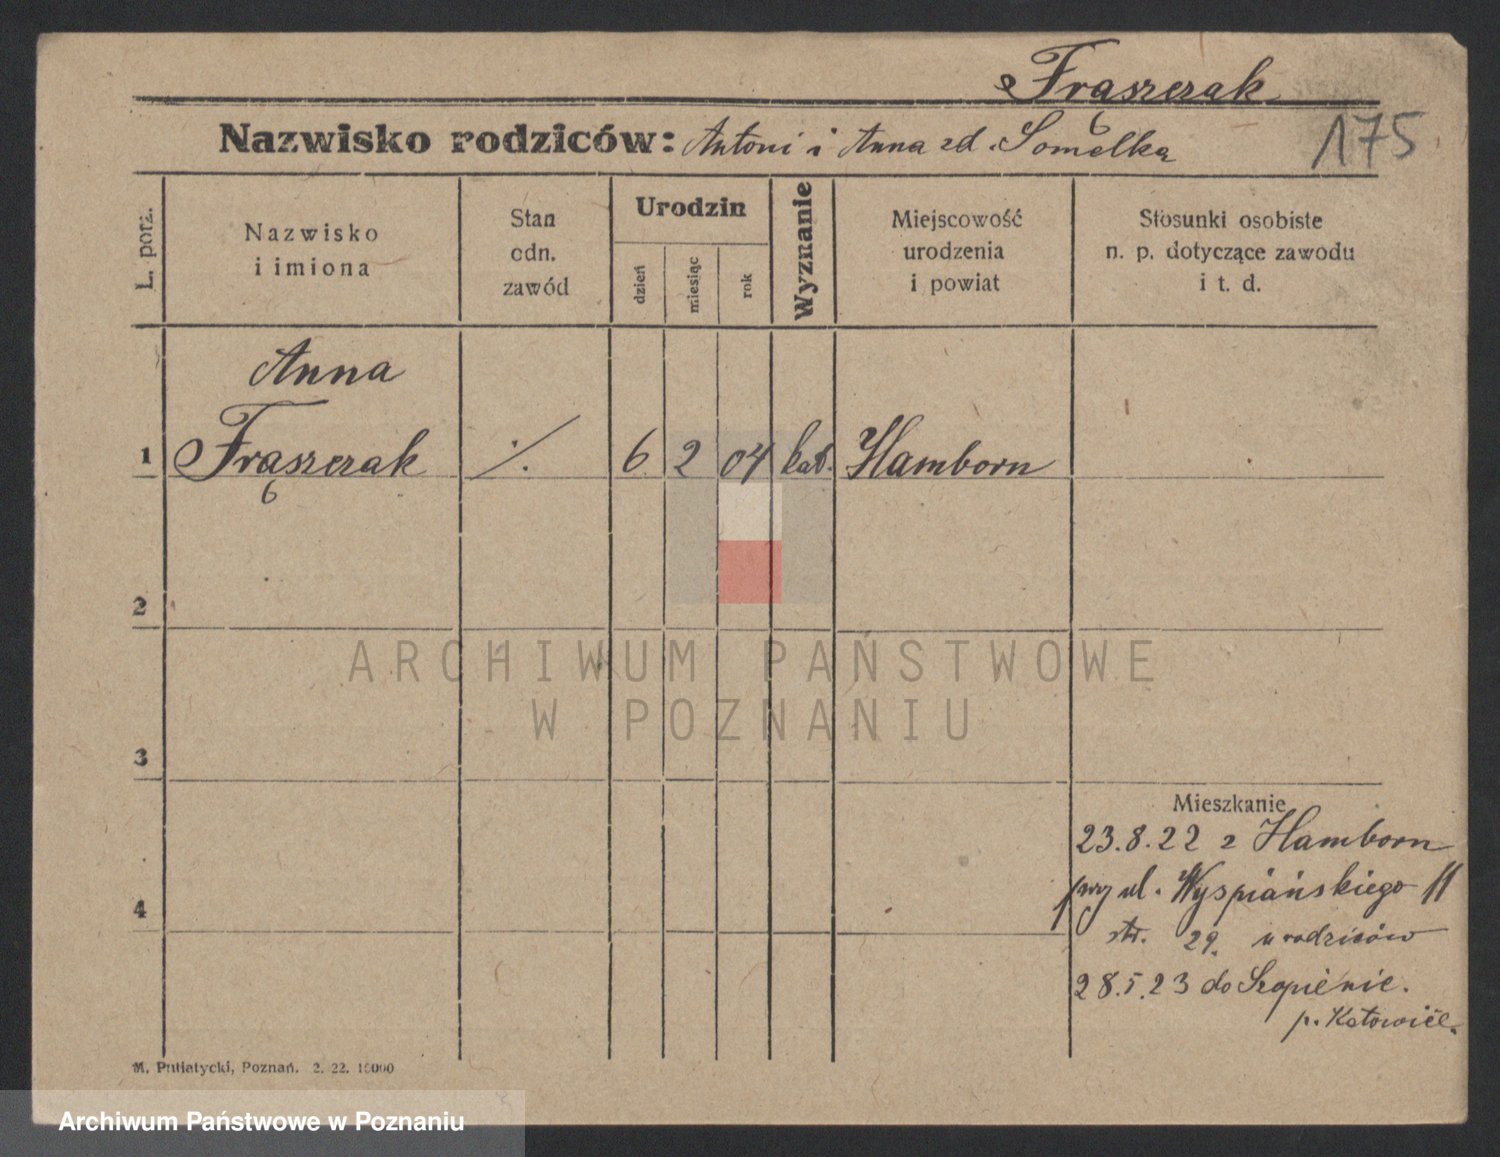 Frąszczak
Nazwisko rodziców: Antoni i Anna zd. Somelka
175
L. porz.
Nazwisko
i imiona
Stan
odn.
zawód
Urodzin
dzień
miesiąc
rok
Wyznanie
Miejscowość
urodzenia
i powiat
Stosunki osobiste
n. p. dotyczące zawodu
i t. d.
Anna
1 Frąszczak ./. 6 2 04 kat. Hamborn
2
ARCHIWUM PAŃSTWOWE
W POZNANIU
3
Mieszkanie
23.8.22 z Hamborn
przy ul. Wyspiańskiego 11
4
str. 29. u rodziców
28.5.23 do Szopienic.
p. Katowice.
M. Putiatycki, Poznań. 2. 22. 15000
Archiwum Państwowe w Poznaniu